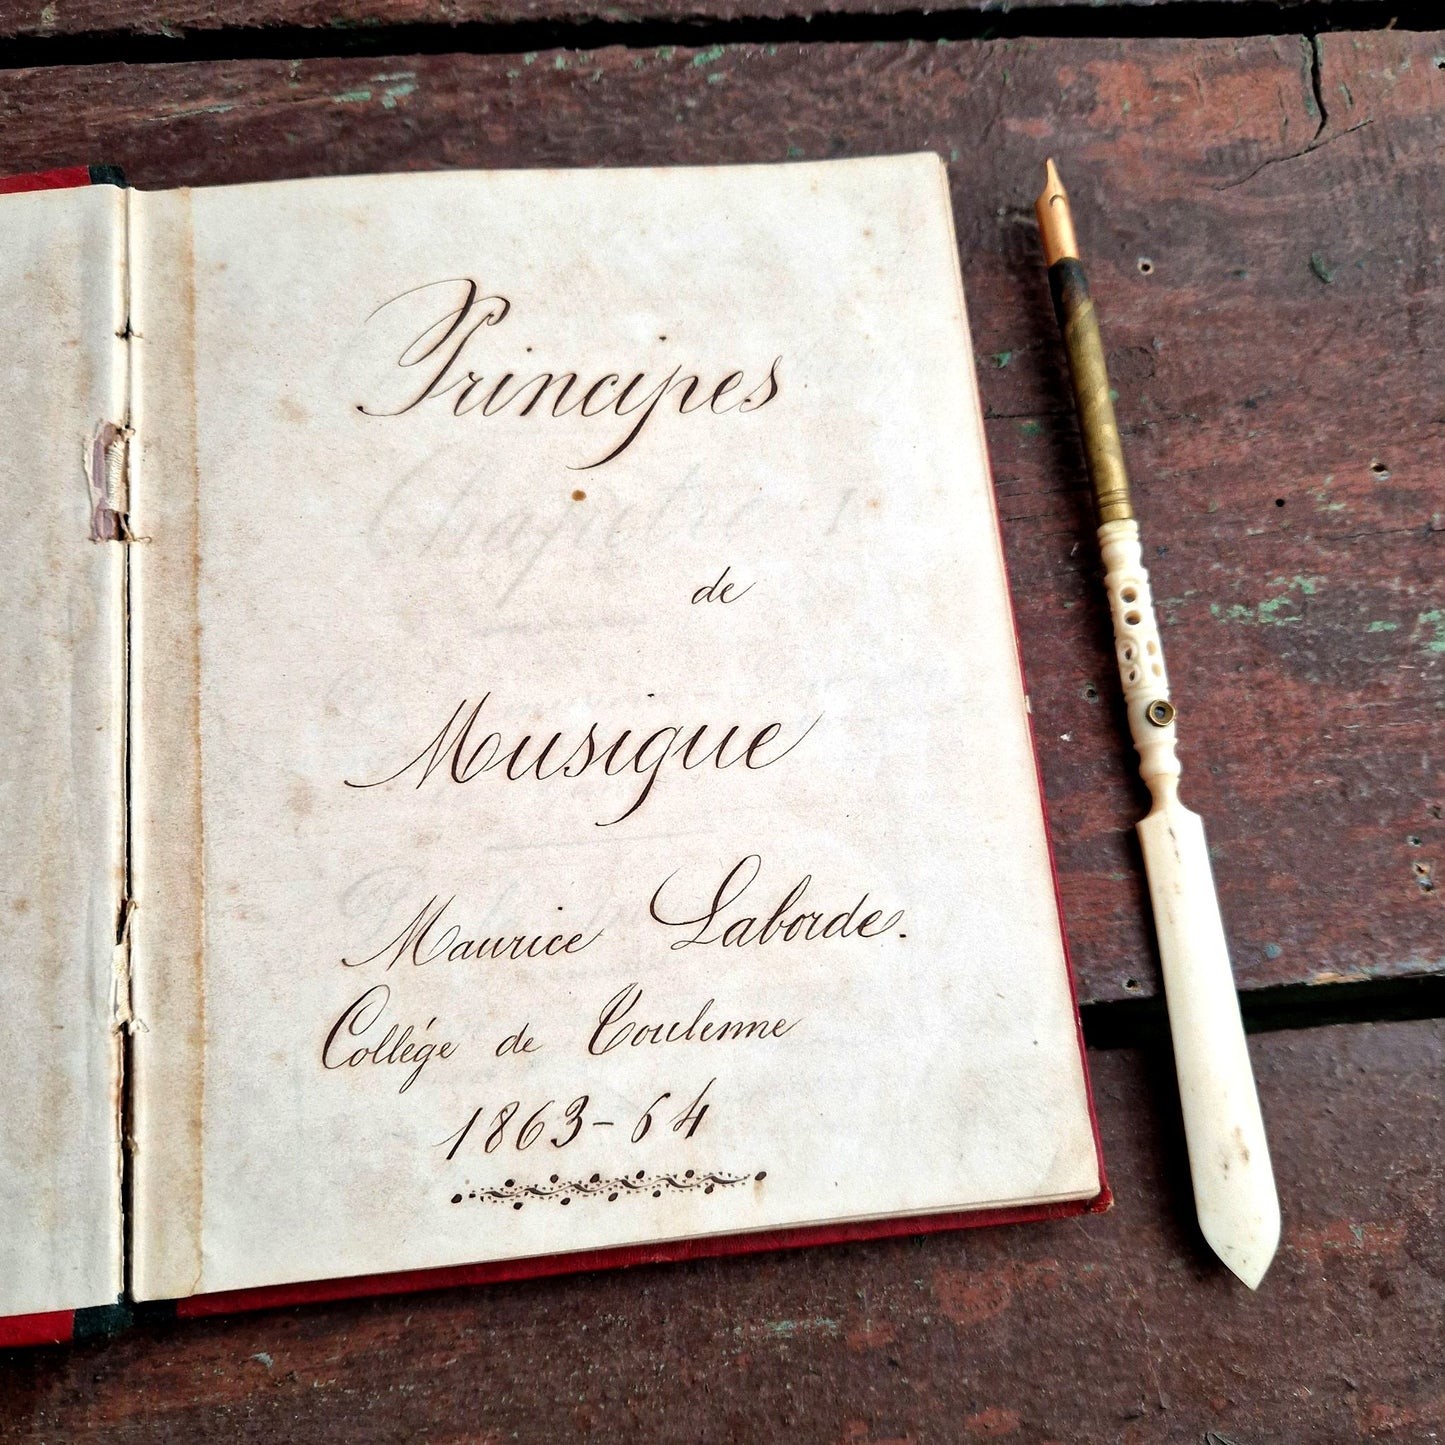 Principes
de
Musique
Maurice Laborde.
Collége de Toulenne
1863-64
Chapitre 1